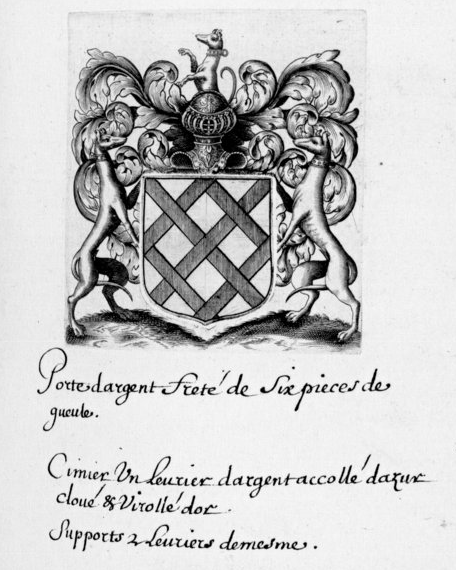 Porte dargent freté de Six pieces de
gueule.
Cimier Un Leurier dargent accollé dazur
cloué & Virollé dor.
Supports 2 Leuriers demesme.